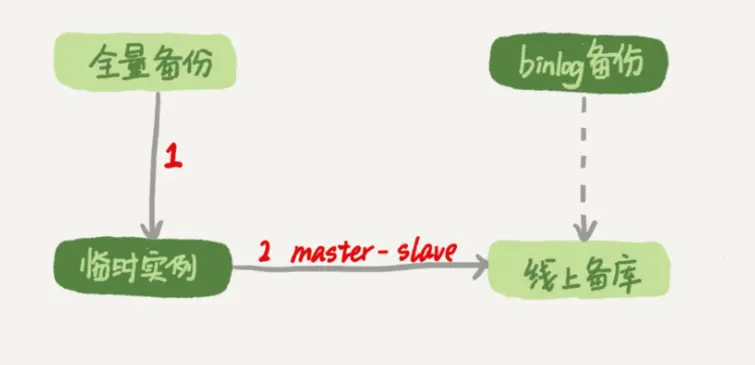 全量备份
binlog备份
1
临时实例
2 master-slave
线上备库